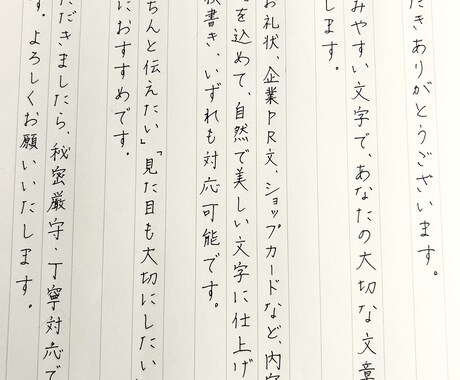 だきありがとうございます。
みやすい文字で、あなたの大切な文章
します。
お礼状、企業PR文、ショップカードなど、内容
を込めて、自然で美しい文字に仕上げ
横書き、いずれも対応可能です。
ちんと伝えたい」「見た目も大切にしたい
におすすめです。
ただきましたら、秘密厳守・丁寧対応で
す。よろしくお願いいたします。